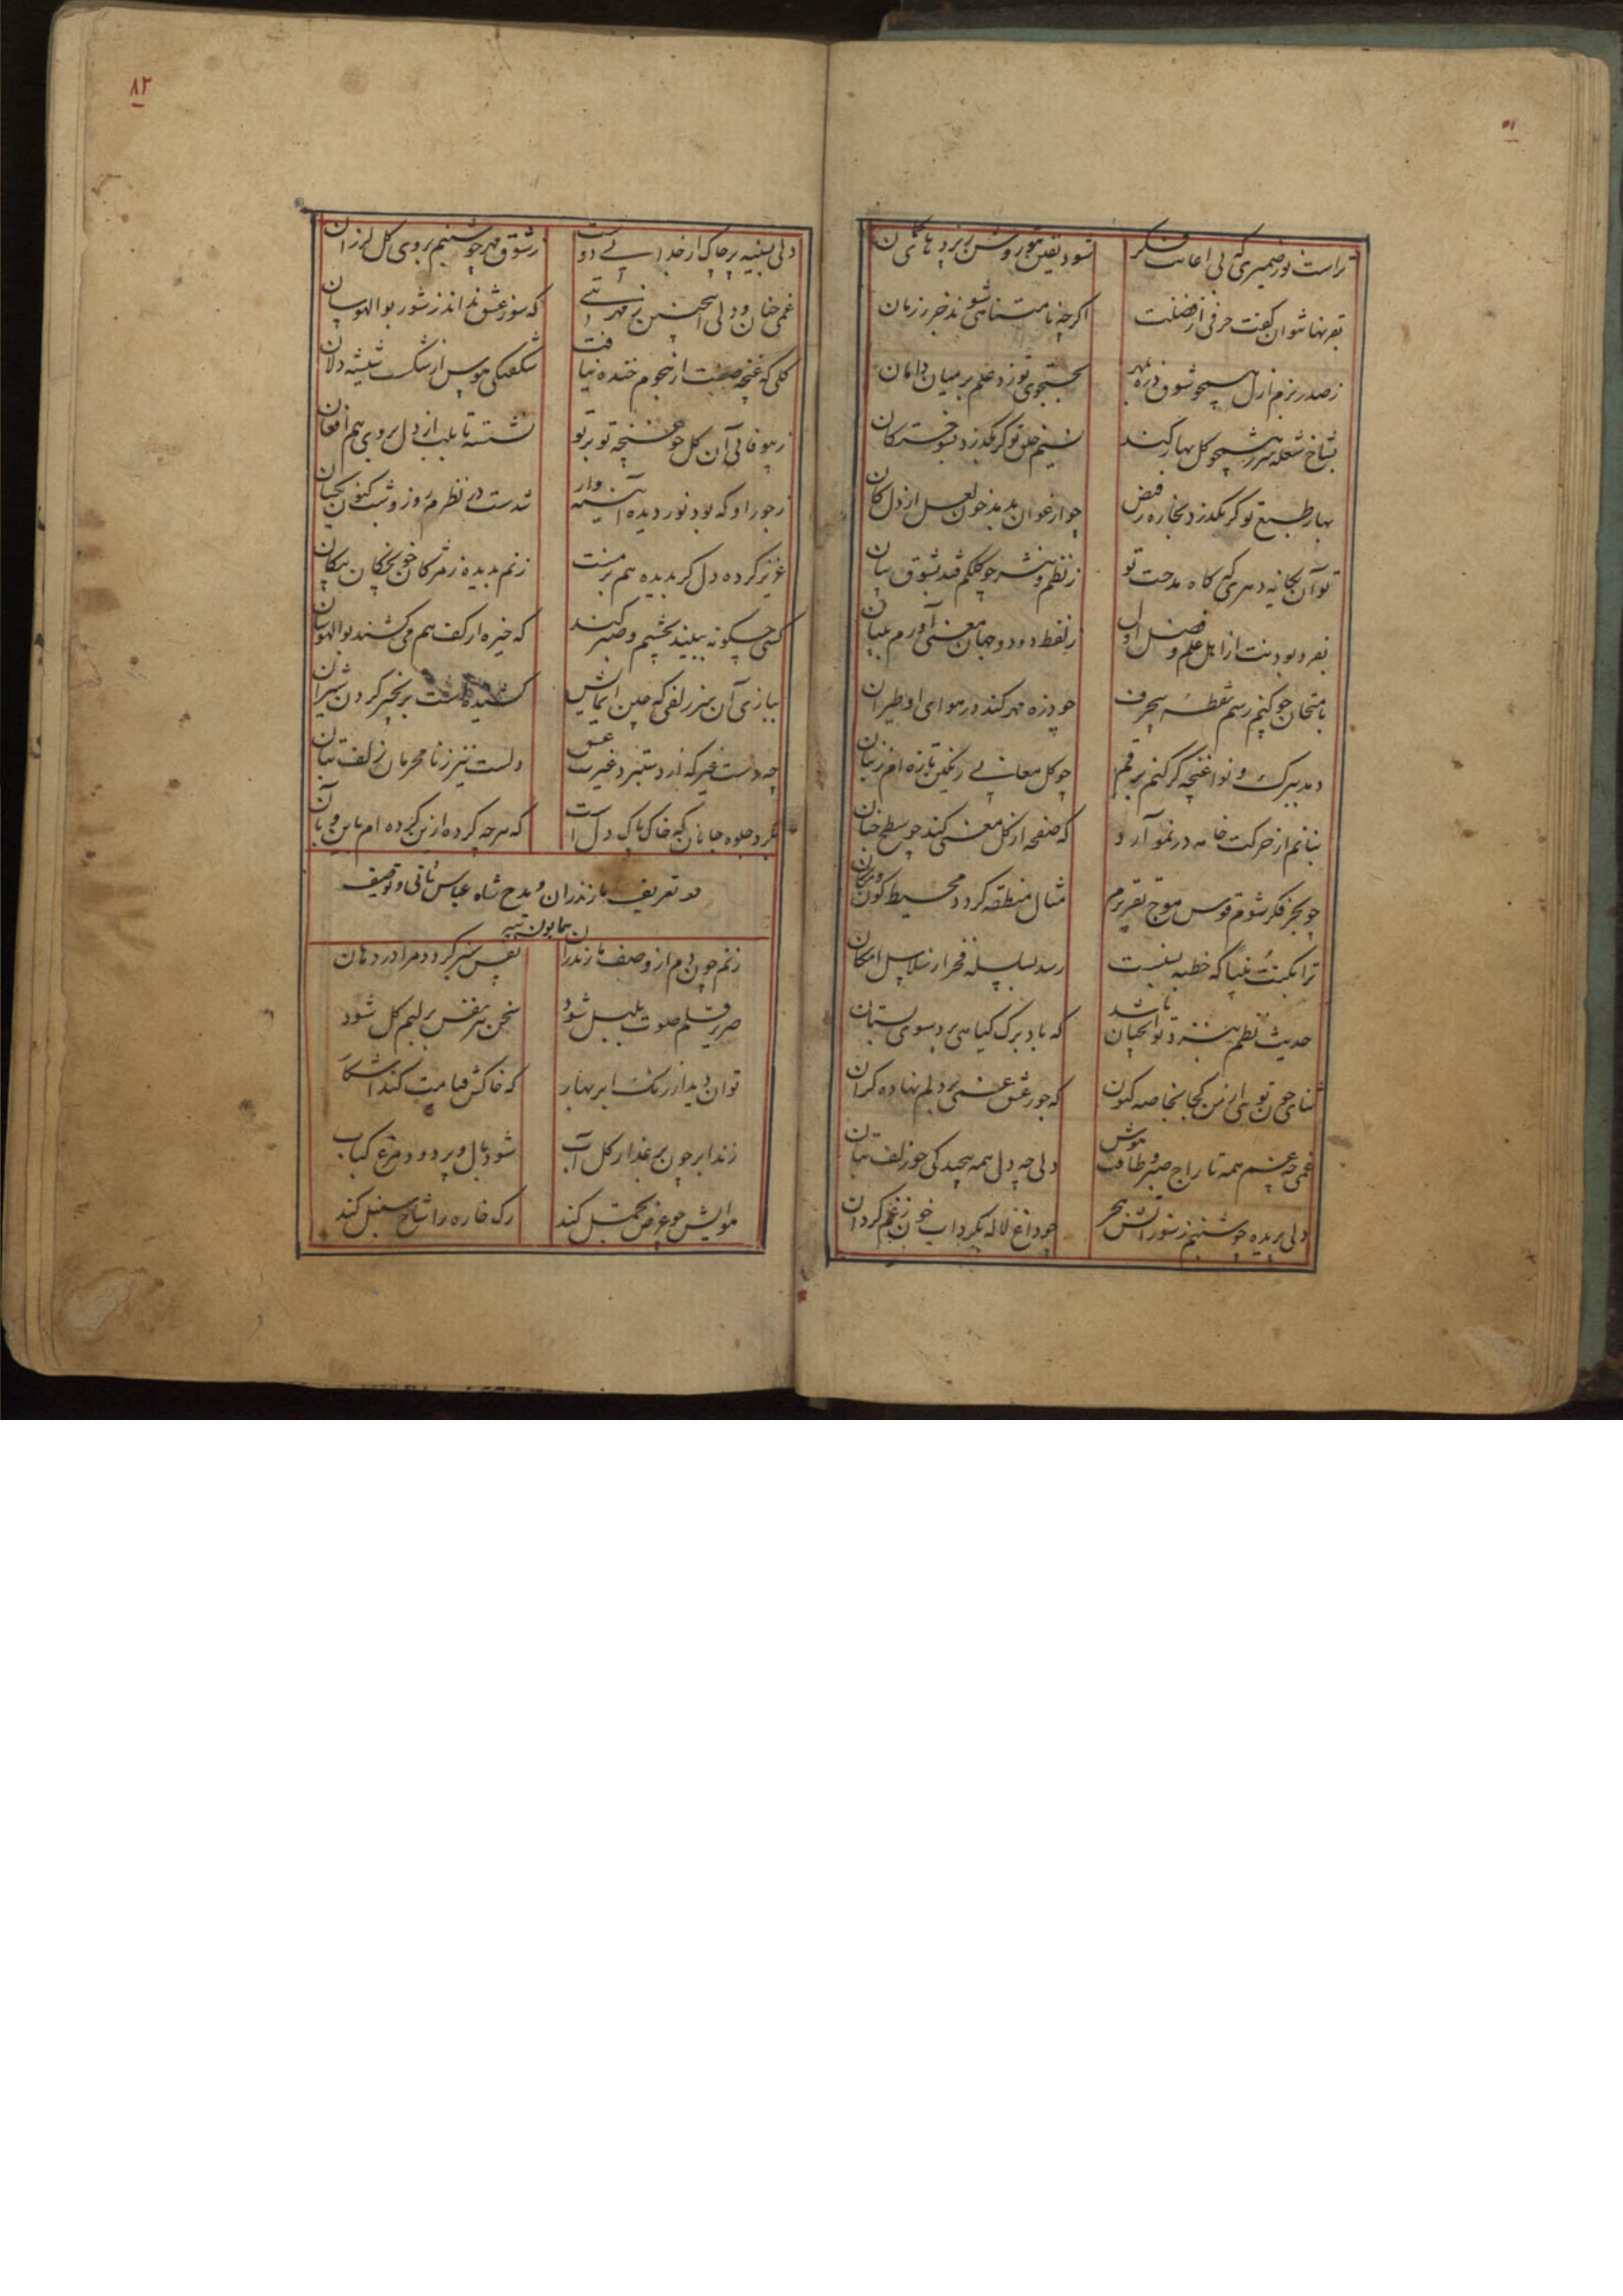 ۸۱
تراست نور ضمیری که بی اعانت فکر
شود یقین تو روشن ز پردهای گمان
بقرنها نتوان گفت حرفی از فضلت
اگرچه نامتناهی شود ز جر زمان
ز صدر بزم ازل همچو شوق ذره مهر
بجستجوی تو زد علم بر میان دامان
بشاخ شعله شرر همچو گل بهار کند
نسیم خلق تو گر بگذرد بسوختگان
بهار طبع تو گر بگذرد بخاره ز فیض
چو ارغوان بدمد خون لعل از دل کان
تو آن یگانه دهری که گاه مدحت تو
ز نظم و نثر چو کلکم شد بشوق بیان
نفرد بودنت از اهل علم و فضل اول
ز نقطه دو دو جهان معنی آورم ببیان
بامتحان چو کنم رسم نقطه شنجرف
چو ذره مهر کند در هوای او طیران
دمد ببرگ و نوا غنچه گر کنم بر قم
چو گل معانی رنگین تازه ام ز بنان
بنانم از حرکت خامه در نمو آرد
که صفحه از گل معنی کند چو سطح جنان
چو بحر فکر شوم قوس موج تقریرم
مثال منطقه گردد محیط کون و مکان
ترا بکنیت بنیا که خطبه نسبت
رسد بسلسله فخر از سلاسل امکان
حدیث نظم بنزد تو آنچنان باشد
که باد برگ گیاهی برد بسوی بستان
ثنای چون تویی از من کجا بخاصه کنون
که جور عشق غمی بر دلم نهاده گران
غمی چه غم همه تاراج صبر و طاقت و هوش
دلی چه دل همه پیچیدگی چو زلف بتان
دلی بریده چو شبنم ز شور آتش هجر
چو داغ لاله بگرداب خون ز غم گردان
۸۲
دلی بسینه پر چاک از خدا بی دوست
ز شوق مهر چو شبنم بروی گل لرزان
غمی چنان و دلی اینچنین ز مهر بتی
که سوز عشق نداند ز شور بوالهوسان
گلی که غنچه صفت از هجوم خنده نیافت
شکفتگی هوس از شکست شیشه دلان
ز بیوفائی آن گل چو غنچه تو بر تو
نشسته تا بلب از دل بروی هم افغان
ز جور او که بود نور دیده آینه وار
شدست در نظرم روز و شب کنون یکسان
عزیز کرده دل گر بدیده هم بر منست
زنم بدیده ز مژگان خونچکان پیکان
کسی چگونه ببیند بچشم و صبر کند
که خیره از کف هم می کشند بوالهوسان
ببازی آن سر زلفی که چین ایماش
کشیده است بزنجیر گردن شیران
چه دست غیر که از دستبرد غیرت عشق
دلست نیز ز نامحرمان زلف بتان
بگرد جلوه جانان که خاک پاک دل است
که هرچه کرده ازین کرده ام باین و بآن
در تعریف مازندران و مدح شاه عباس ثانی و توصیف
زنم چون دم از وصف مازندران
نفس سبز گردد مرا در دهان
صریر قلم صوت بلبل شود
سخن سر نفس بر لبم گل شود
توان دید از رنگ ابر بهار
که خاکش قیامت کند آشکار
زند ابر چون بر عذار گل آب
شود بال و پر دود مرغ کباب
هوایش چو عرض تجمل کند
رگ خاره را شاخ سنبل کند